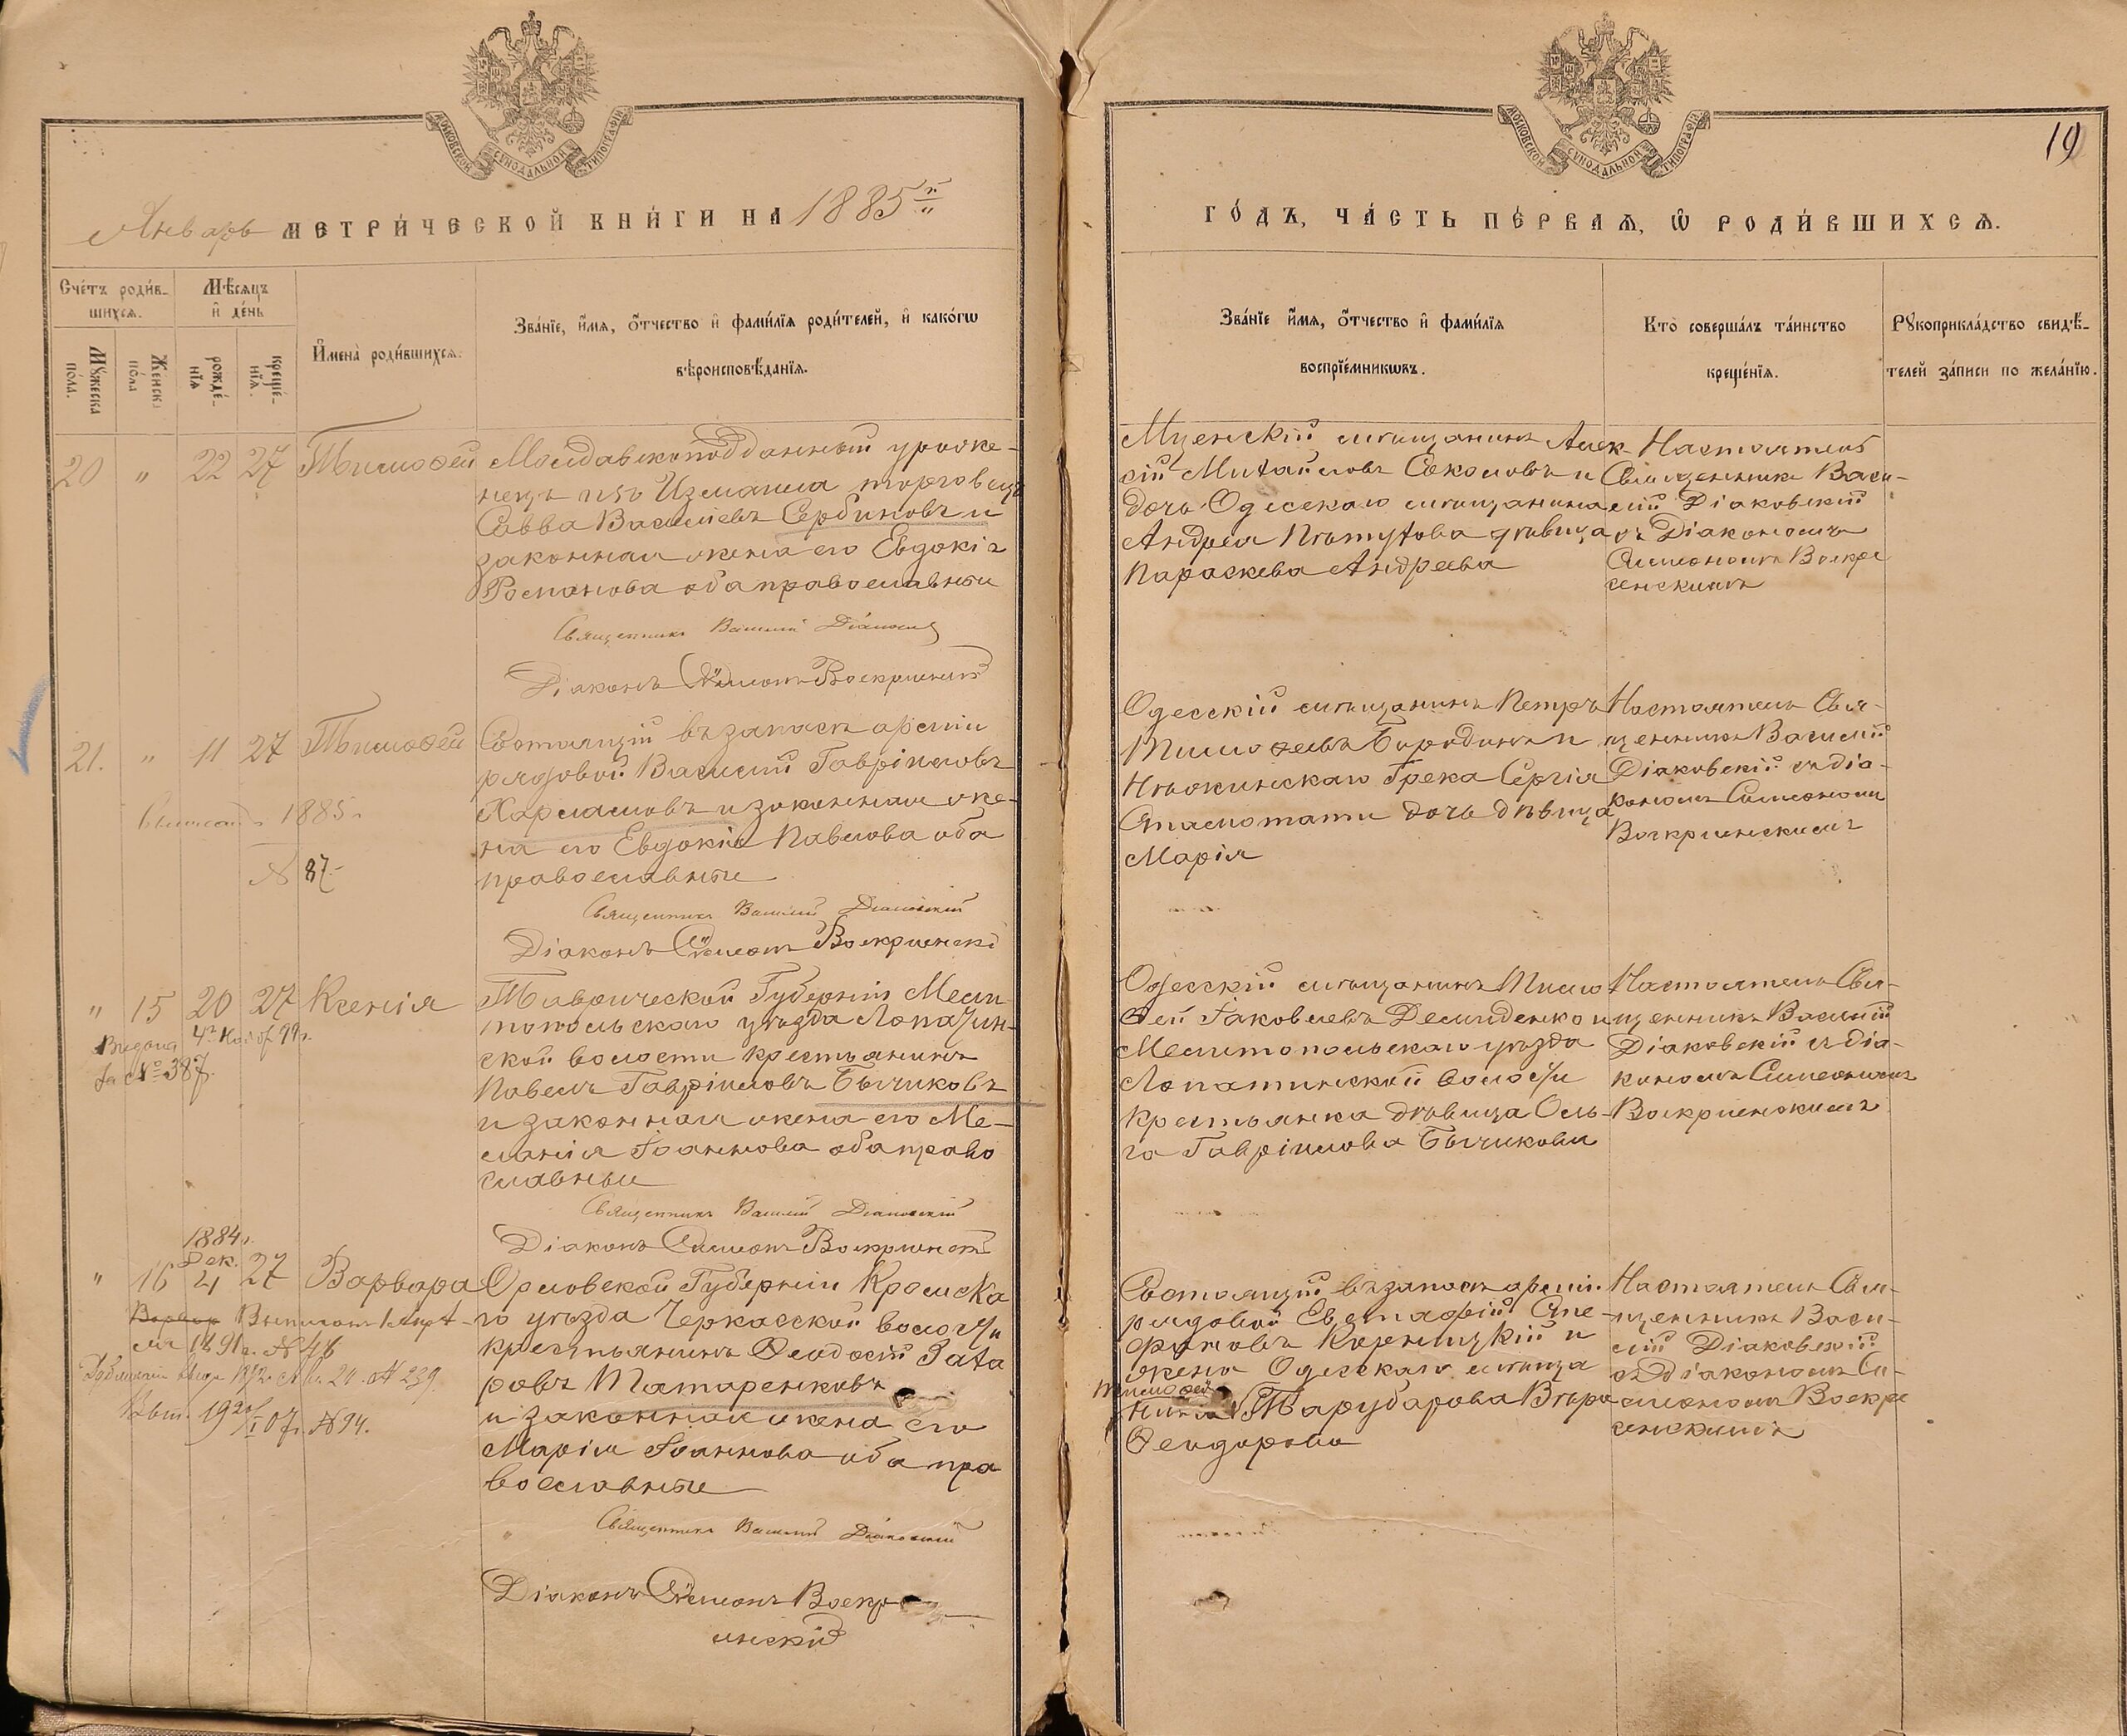 МОСКОВСКОЙ СѴНОДАЛЬНОЙ ТИПОГРАФІИ
МОСКОВСКОЙ СѴНОДАЛЬНОЙ ТИПОГРАФІИ
19
Январь МЕТРИ́ЧЕСКОЙ КНИ́ГИ НА 1885 й
ГО́ДЪ, ЧА́СТЬ ПЕ́РВАѦ, Ѡ РОДИ́ВШИХСѦ.
Сче́тъ роди́в-
шихсѧ.
Мꙋжеска по́ла.
Же́нска по́ла
Мѣ́сѧцъ и҆ де́нь
рожде́-нїѧ
креще́-нїѧ.
И҆мена̀ роди́вшихсѧ.
Зва́нїе, и҆́мѧ, ѻ҆́тчество и҆ фами́лїѧ роди́телей, и҆ како́гѡ
вѣроисповѣ́данїѧ.
Зва́нїе и҆́мѧ, ѻ҆́тчество и҆ фами́лїѧ
воспрїе́мникѡвъ.
Кто̀ соверша́лъ та́инство
креще́нїѧ.
Рꙋкоприкла́дство свидѣ́-
телей за́писи по жела́нїю.
20 " 22 27 Тимофей
Молдавскоподданный уроже-
нецъ изъ Измаила торговецъ
Савва Васильевъ Сербиновъ и
законная жена его Евдокія
Романова оба православные
Священник Василій Діаковскій
Діаконъ Симеонъ Воскресенскій
Мценскій мѣщанинъ Алек-
сій Михайловъ Соколовъ и
дочь Одесскаго мѣщанина
Андрея дѣвица
Параскева Андреева
Настоятель
Священникъ Васи-
лій Діаковскій
съ Діакономъ
Симеономъ Воскре
сенскимъ
21. " 11 27 Тимофей
1885 г.
№ 87.-
Состоящій въ запасѣ арміи
рядовой Василій Гавріиловъ
Харламовъ и законная же-
на его Евдокія Павлова оба
православные
Священникъ Василій Діаковскій
Діаконъ Симеонъ Воскресенскі
Одесскій мѣщанинъ Петръ
Тимофеевъ Бородинъ и
Нѣжинскаго Грека Сергія
дочь дѣвица
Марія
Настоятель Свя-
щенникъ Василій
Діаковскій съ діа-
кономъ Симеономъ
Воскресенскимъ
" 15 20 27 Ксенія
Выдана 4го Нояб. 99 г.
за № 387.
Таврической Губерніи Мели-
топольскаго уѣзда Лопатин-
ской волости крестьянинъ
Павелъ Гавріиловъ Бычиковъ
и законная жена его Ме-
ланія Іоаннова оба право
славные
Священникъ Василій Діаковскій
Діаконъ Симеонъ Воскресенскій
Одесскій мѣщанинъ Тимо
фей Іаковлевъ Демиденко и
Мелитопольскаго уѣзда
Лопатинской волости
крестьянка дѣвица Оль-
га Гавріилова Бычикова
Настоятель Свя-
щенникъ Василій
Діаковскій съ діа-
кономъ Симеономъ
Воскресенскимъ
1884 г.
Дек.
" 16 4 27 Варвара
1891 г. № 46
№ 239
07 г. № 94.
Орловской Губерніи Кромска
го уѣзда Черкасской волости
крестьянинъ Феодосій Заха
ровъ Татаренковъ
и законная жена его
Марія Іоаннова оба пра
вославные
Священникъ Василій Діаковскій
Діаконъ Симеонъ Воскре
сенскій
Состоящій въ запасѣ арміи
рядовой Евстафій Сте-
фановъ Корницкій и
жена Одесскаго мѣща
нина Тимофея Тарубарова Вѣра
Феодорова
Настоятель Свя-
щенникъ Васи-
лій Діаковскій
съ Діакономъ Си-
меономъ Воскре
сенскимъ